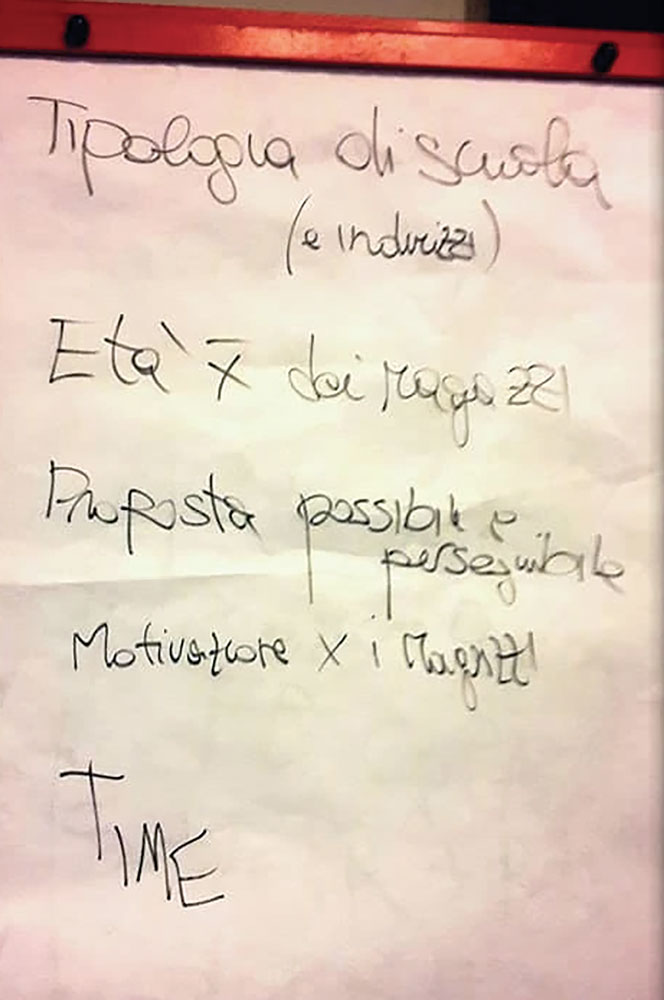 Tipologia di scuola
(e indirizzi)
Età x̄ dei ragazzi
Proposta possibile e
perseguibile
Motivatore x i ragazzi
TIME